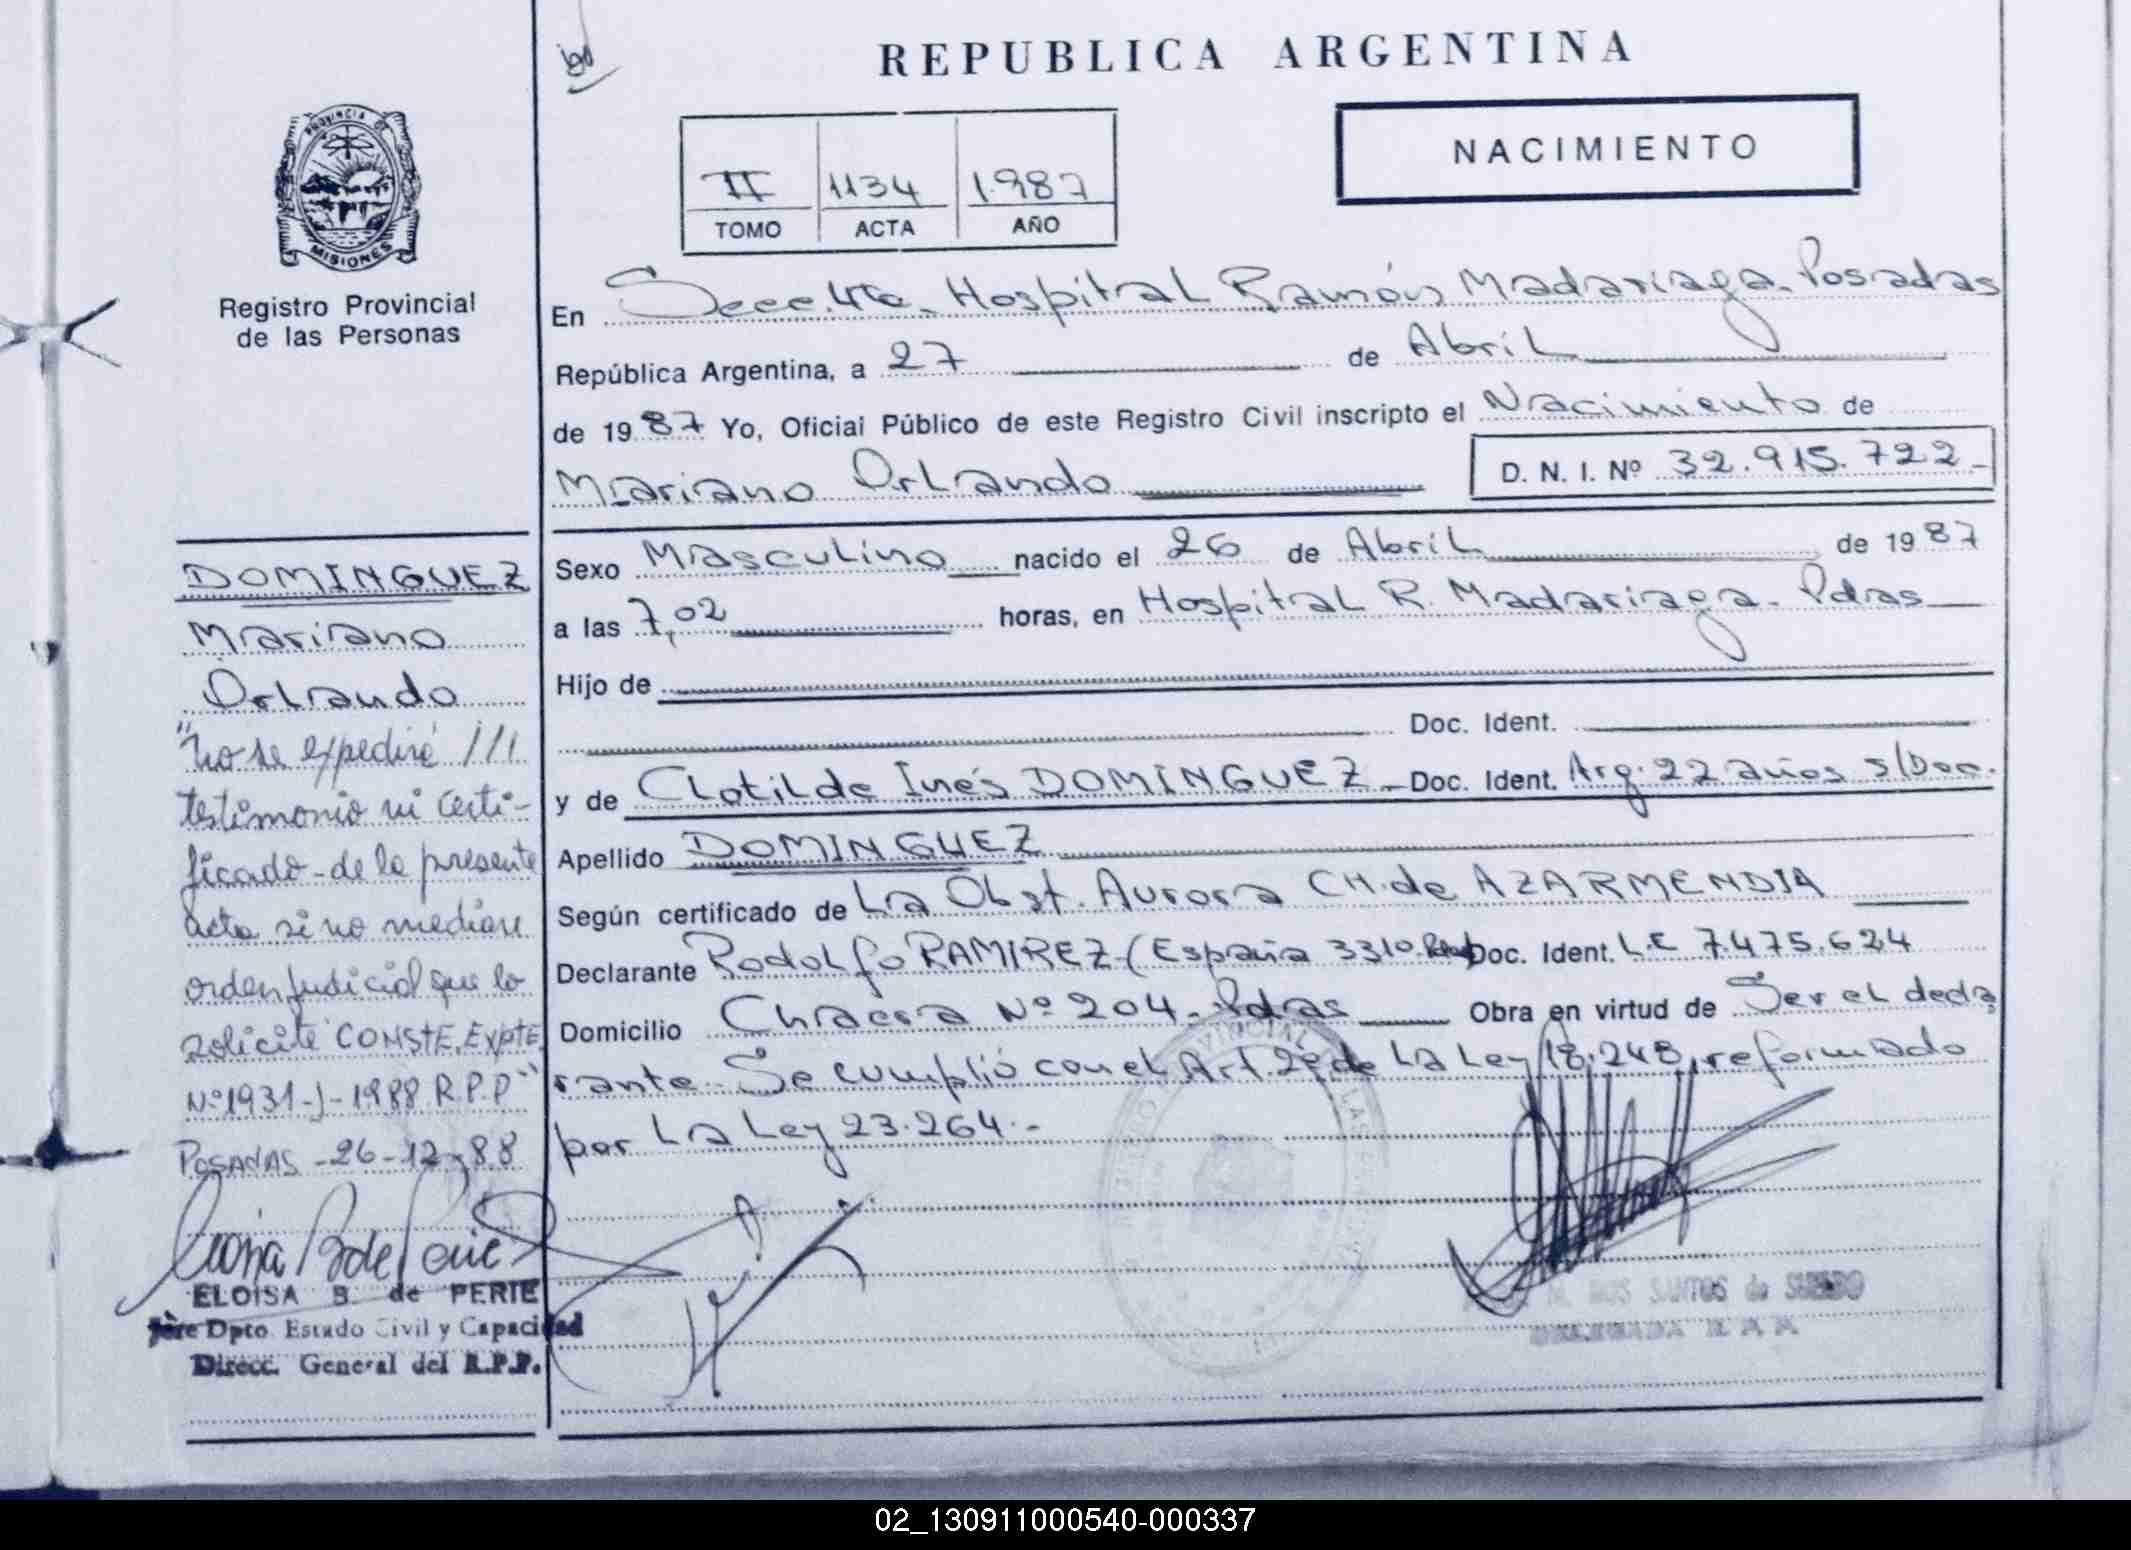 REPUBLICA ARGENTINA
NACIMIENTO
II 1134 1.987
TOMO ACTA AÑO
PROVINCIA DE
MISIONES
Registro Provincial
de las Personas
En Secc. 4ta. Hospital Ramón Madariaga. Posadas
República Argentina, a 27 de Abril
de 1987 Yo, Oficial Público de este Registro Civil inscripto el Nacimiento de
Mariano Orlando D. N. I. Nº 32.915.722
Sexo Masculino nacido el 26 de Abril de 1987
a las 7,02 horas, en Hospital R. Madariaga. Pdras
Hijo de
Doc. Ident.
y de Clotilde Inés DOMINGUEZ Doc. Ident. Arg. 22 años s/Doc.
Apellido DOMINGUEZ
Según certificado de La Obst. Aurora CH. de AZARMENDIA
Declarante Rodolfo RAMIREZ (España 3310 Doc. Ident. L.E 7.475.624
Domicilio Chacra Nº 204. Pdas Obra en virtud de Ser el decla
rante. Se cumplió con el Art. 2º de La Ley 18.248, reformado
por La Ley 23.264.-
DOMINGUEZ
Mariano
Orlando
"No se expedirá ///
testimonio ni certi-
ficado de la presente
acta si no mediare
orden judicial que lo
solicite CONSTE. EXPTE
Nº 1931-J-1988 R.P.P"
POSADAS - 26-12-88
ELOISA B. de PERIE
Jefe Dpto Estado Civil y Capacidad
Direcc. General del R.P.P.
M. DOS SANTOS de
DELEGADA
02_130911000540-000337